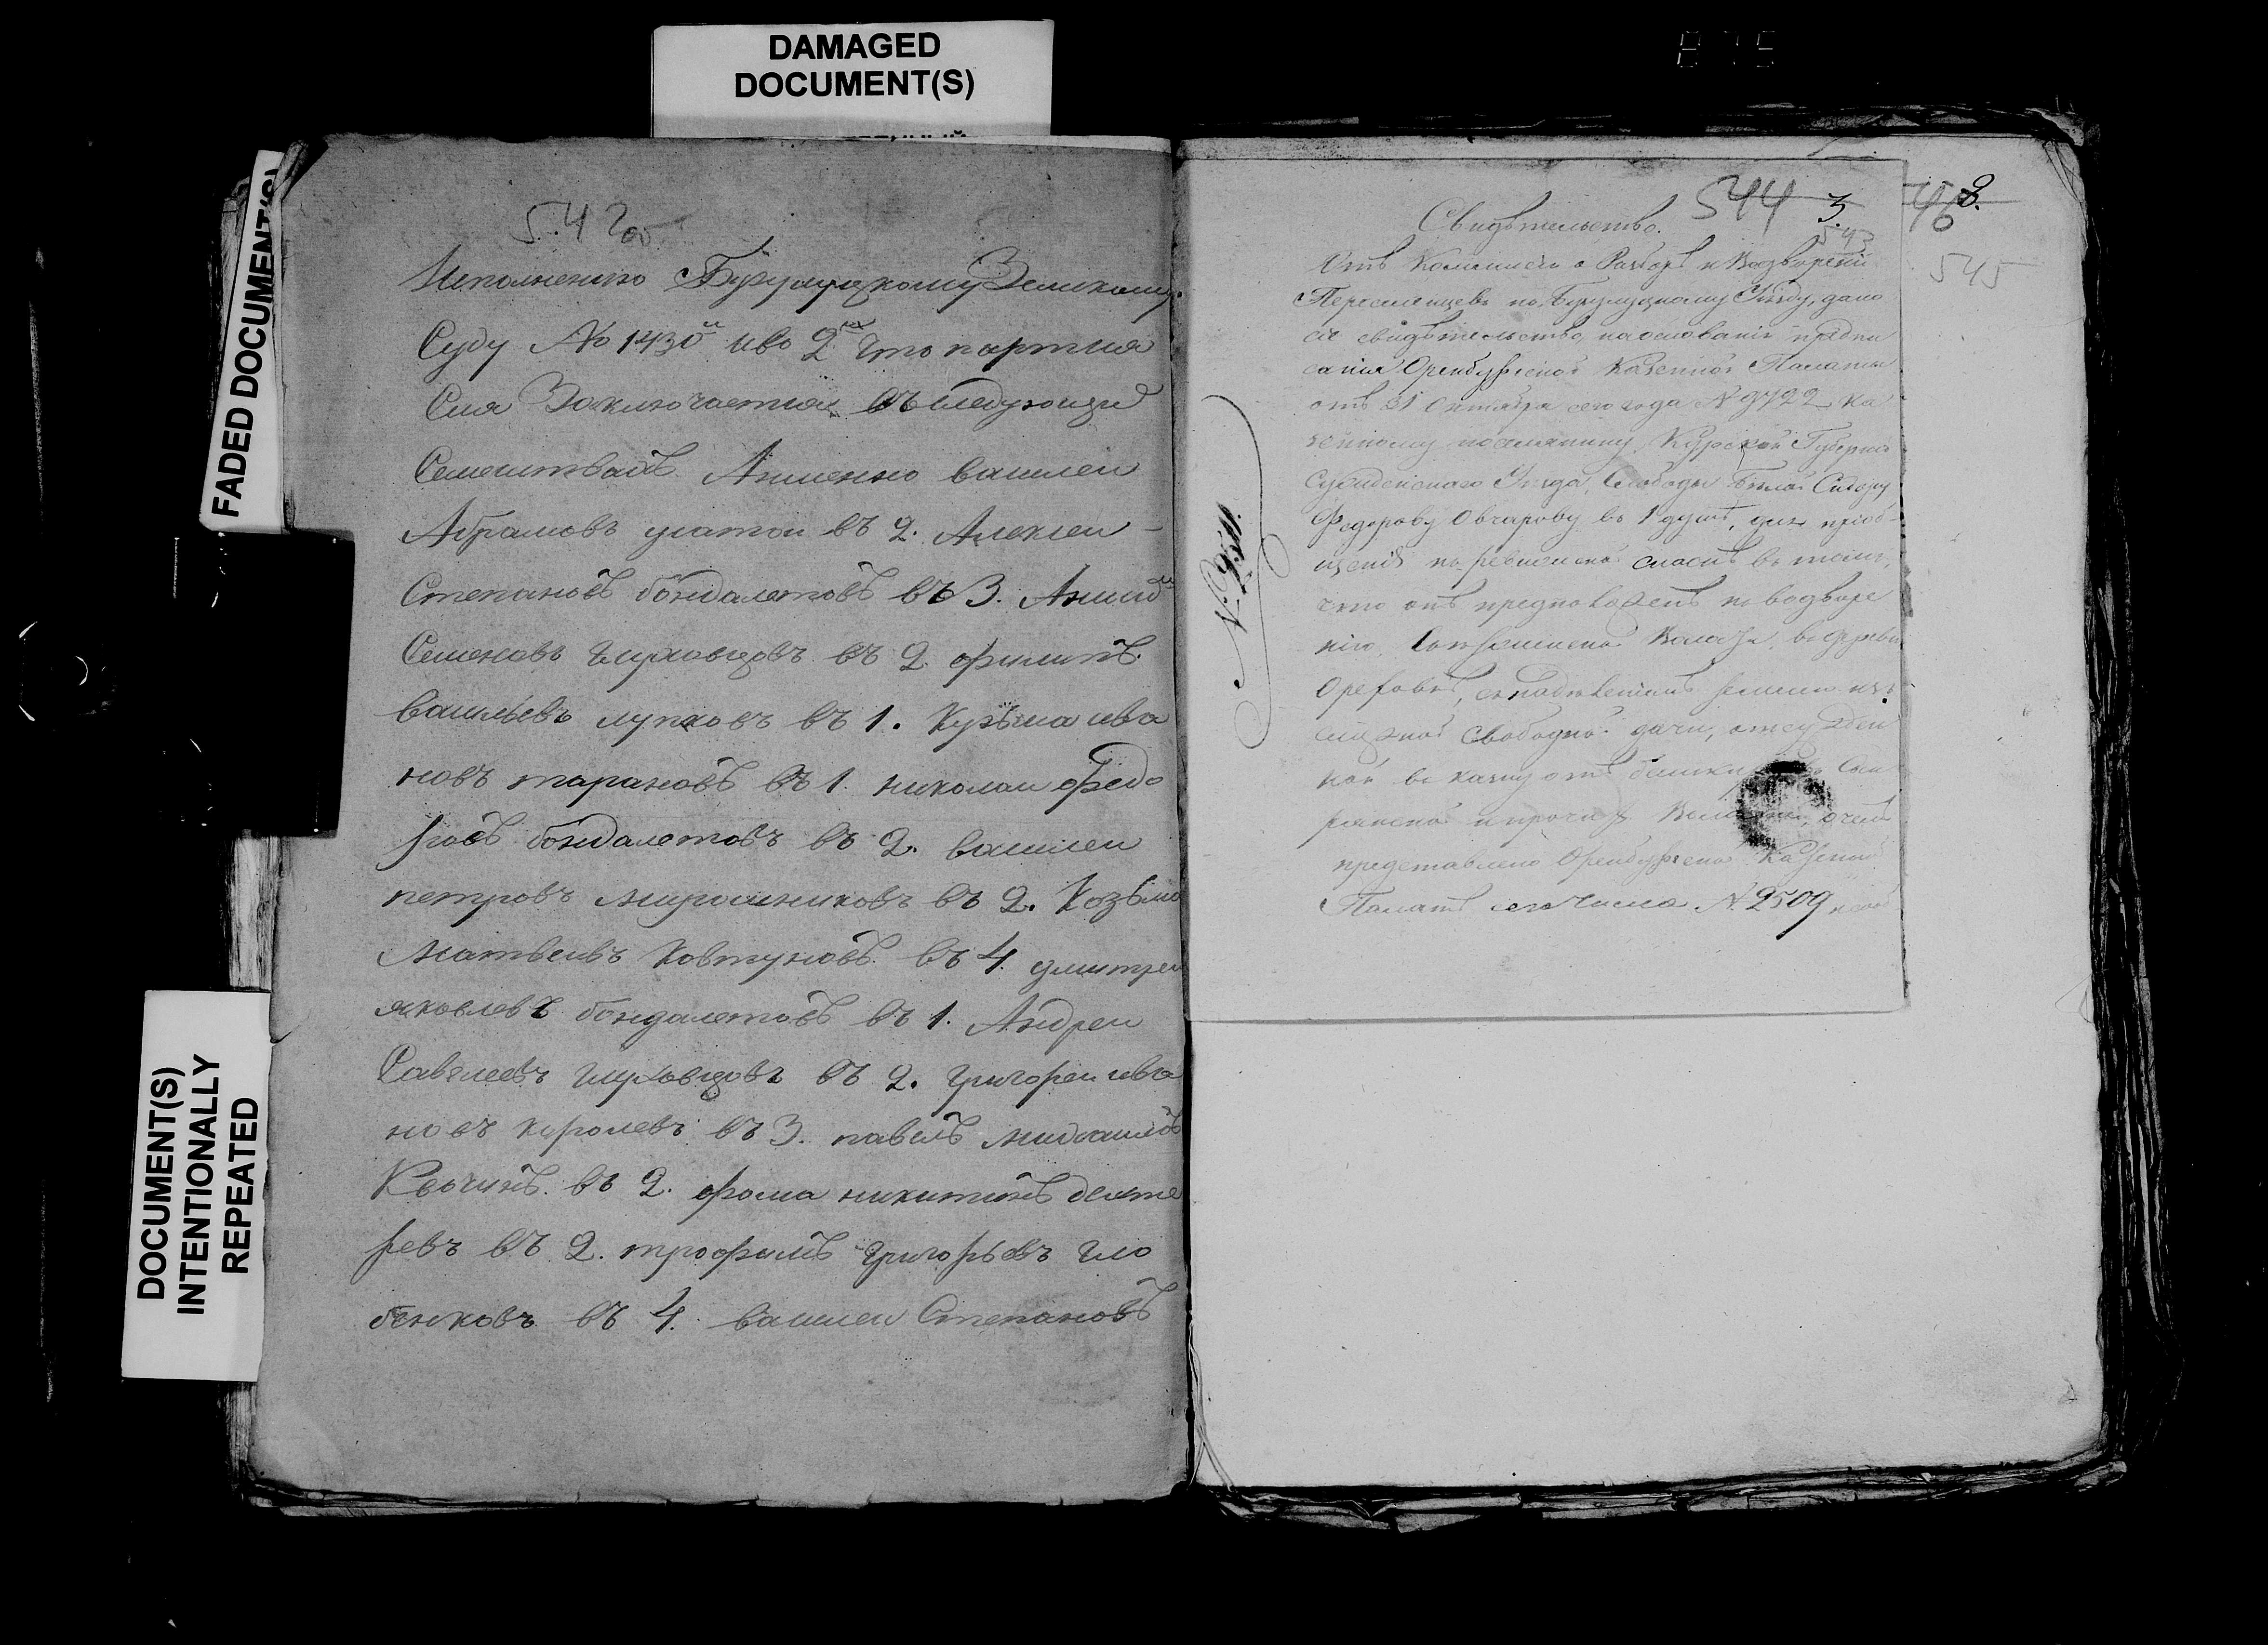 DAMAGED
DOCUMENT(S)
FADED DOCUMENT(S)
DOCUMENT(S)
INTENTIONALLY
REPEATED
542 об
Исполнению Бугурускому Земскому
Суду № 1430й иво 2хъ что партия
Сия Заключается въ следующи
Семействахъ
василеи
Абрамовъ усатои въ 2. Алексеи
Степановъ бондалетовъ въ 3.
Семеновъ глуховцовъ въ 2. филипъ
васильевъ лупковъ въ 1. Кузьма ива
новъ тарановъ въ 1. николаи федо
ровъ бондалетовъ въ 2. василеи
петровъ мирошниковъ въ 2. Козьма
Матвеивъ Ковтуновъ въ 4. дмитреи
яковлевъ бондалетовъ въ 1. Андреи
Савелеевъ глуховцовъ въ 2. григореи ива
новъ королевъ въ 3. павелъ михаиловъ
Квочинъ въ 2. фома никитинъ дехте
ревъ въ 2. трофимъ григорьевъ гло
бенковъ въ 4. василеи Степановъ
544 3.
543
8.
545
Свидѣтельство.
Отъ Комиссіи о Разборѣ и Водвореніи
Переселенцевъ по Бугурусланскому Уѣзду, дано
сіе свидѣтельство, на основаніи предпи
санія Оренбургской Казенной Палаты
отъ 31 Октября сего года № 9722 ка
зенному поселянину Курской Губерніи
Суджанскаго Уѣзда, Слободы Бѣлой Сидору
Федорову Овчарову въ 1 душѣ, для пріоб
щенія къ ревизской сказкѣ въ томъ,
что онъ предположенъ къ водворе
нію
Волости, въ деревнѣ
Ореховкѣ, съ надѣленіемъ земли из
свободной дачи, отсужден
ной въ казну отъ
и прочихъ
о чемъ
представлено Оренбургской Казенной
Палатѣ сего числа № 2509
№ 2511.